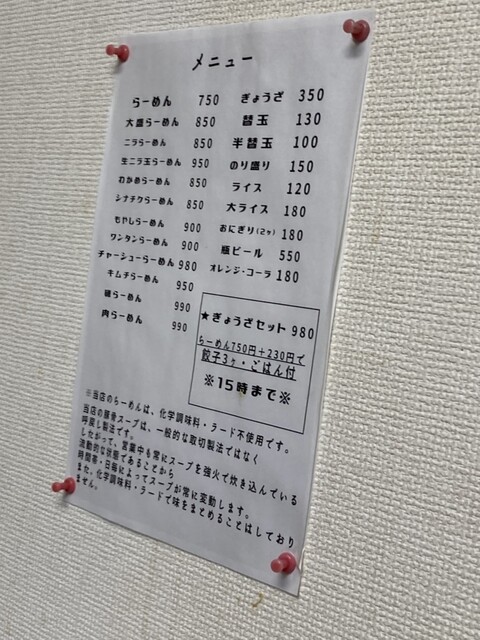 メニュー
らーめん 750
大盛らーめん 850
ニラらーめん 850
生ニラ玉らーめん 950
わかめらーめん 850
シナチクらーめん 850
もやしらーめん 900
ワンタンらーめん 900
チャーシューらーめん 980
キムチらーめん 950
磯らーめん 990
肉らーめん 990
ぎょうざ 350
替玉 130
半替玉 100
のり盛り 150
ライス 120
大ライス 180
おにぎり(2ヶ) 180
瓶ビール 550
オレンジ・コーラ 180
★ぎょうざセット 980
らーめん750円+230円で
餃子3ヶ・ごはん付
※15時まで※
※当店のらーめんは、化学調味料・ラード不使用です。
当店の豚骨スープは、一般的な取切製法ではなく
呼戻し製法です。
したがって、営業中も常にスープを強火で炊き込んでいる
流動的な状態であることから
時間帯・日毎によってスープが常に変動します。
また、化学調味料・ラードで味をまとめることはしており
ません。